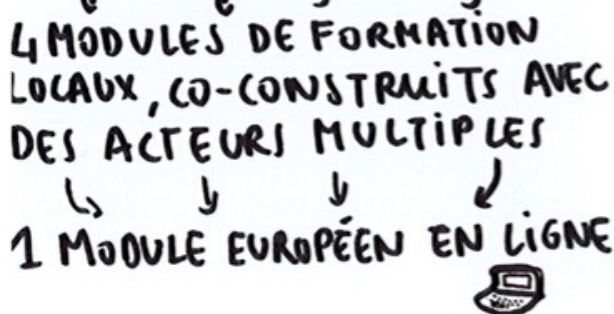 4 MODULES DE FORMATION
LOCAUX, CO-CONSTRUITS AVEC
DES ACTEURS MULTIPLES
1 MODULE EUROPÉEN EN LIGNE